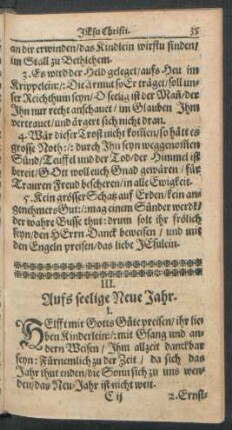 JEsu Christi. 35
an dir erwinden/das Kindlein wirstu finden/
im Stall zu Bethlehem.
3. Es wird der Held geleget/aufs Heu im
Krippelein:/: Die armut so Er träget/soll un-
ser Reichthum seyn/O seelig ist der Mañ/der
Ihn nur recht anschauet/ im Glauben Ihm
vertrauet/und ärgert sich nicht dran.
4. Wär dieser Trost nicht kom̃en/so hätt es
grosse Noth:/: durch Ihn seyn weggenom̃en
Sünd/Teuffel und der Tod/der Himmel ist
bereit/GOtt woll euch Gnad gewären / für
Trauren Freud bescheren/in alle Ewigkeit.
5. Kein grösser Schatz auf Erden/kein an-
genehmers Gut:/:mag einem Sünder werdē/
der wahre Busse thut: drum solt ihr frölich
seyn/den HErrn Danck beweisen / und mit
den Engeln preisen/das liebe JEsulein.
III.
Aufs seelige Neue Jahr.
1.
HElfft mir Gotts Güte preisen/ihr lie-
ben Kinderlein:/:mit Gsang und an-
dern Weisen/ Ihm allzeit danckbar
seyn: Fürnemlich zu der Zeit / da sich das
Jahr thut enden/die Sonn sich zu uns wen-
den/das Neu-Jahr ist nicht weit.
C ij 2. Ernst-